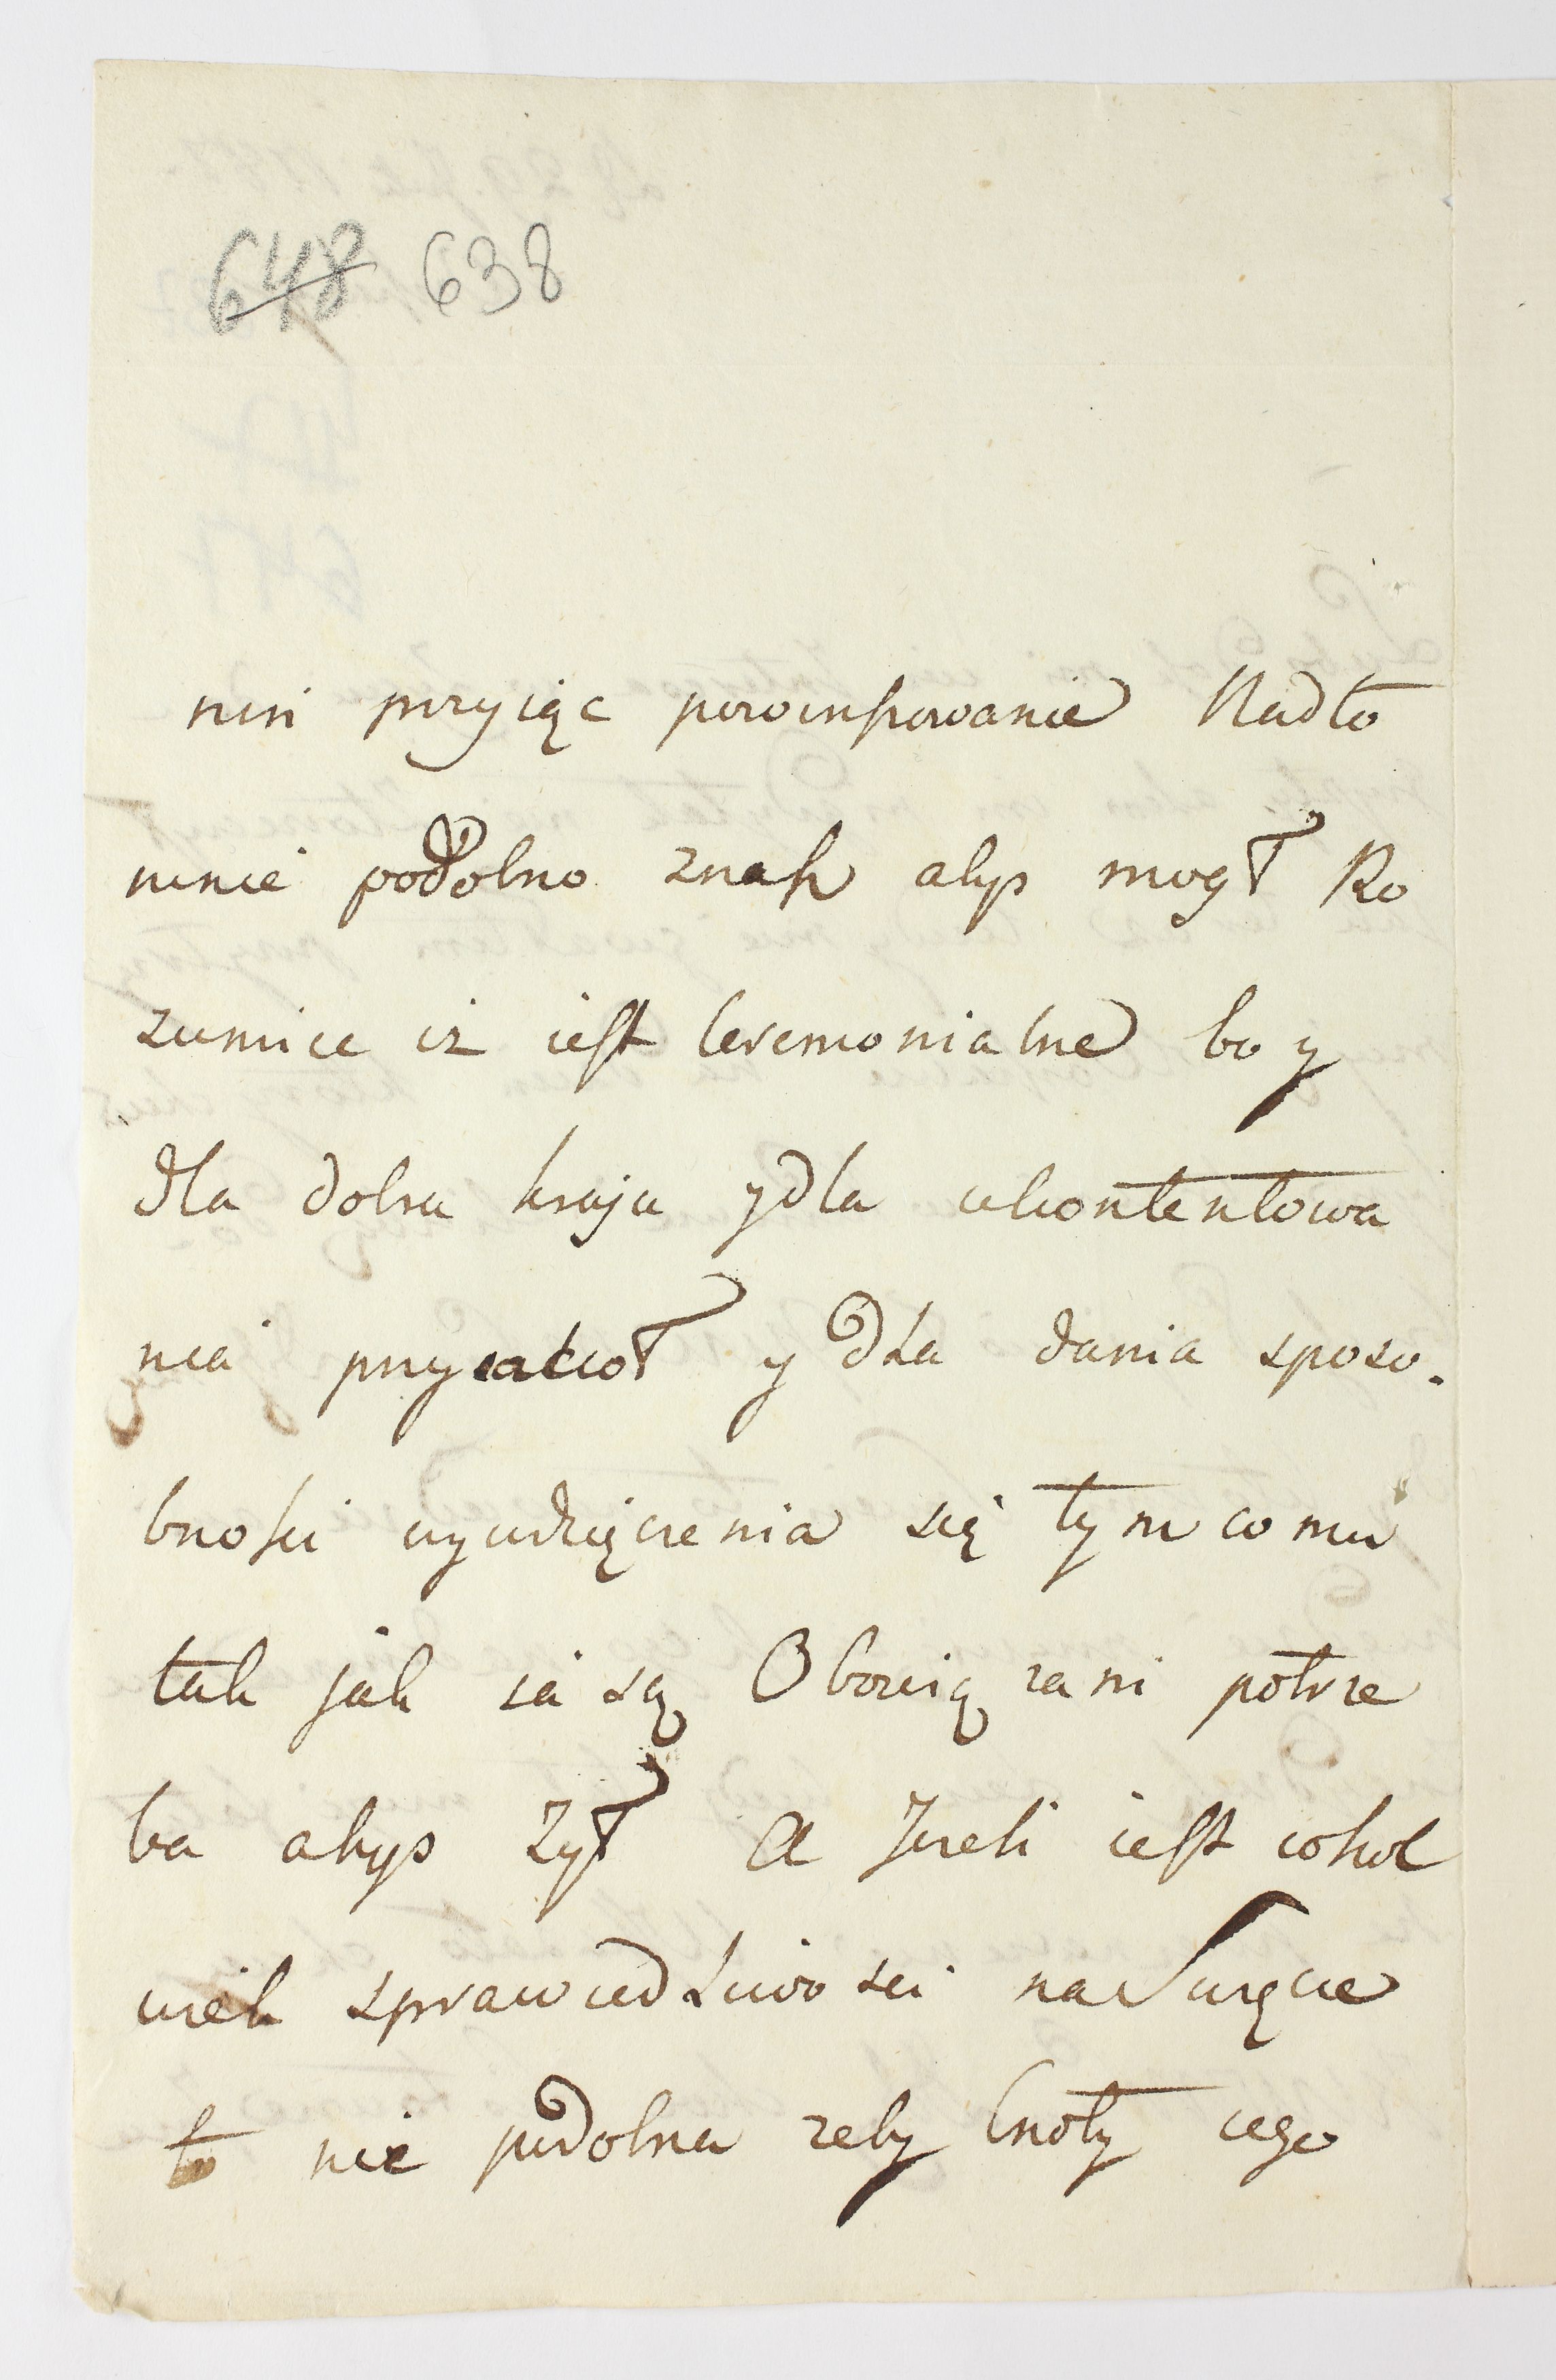 648 638
nin przyiąc powinszowanie Nadto
mnie podobno znasz abys mogł Ro
zumiec iz iest Ceremonialne bo y
dla dobra kraju y dla ukontentowa
nia przyiacioł y dla dania sposo-
bnosci wywdzięczenia się tym co mu
tak jak ia są Obowiązani potrze
ba abys Zył A Jezeli iest cokol
wiek sprawiedliwosci na Swięcie
to nie podobna zeby Cnoty iego